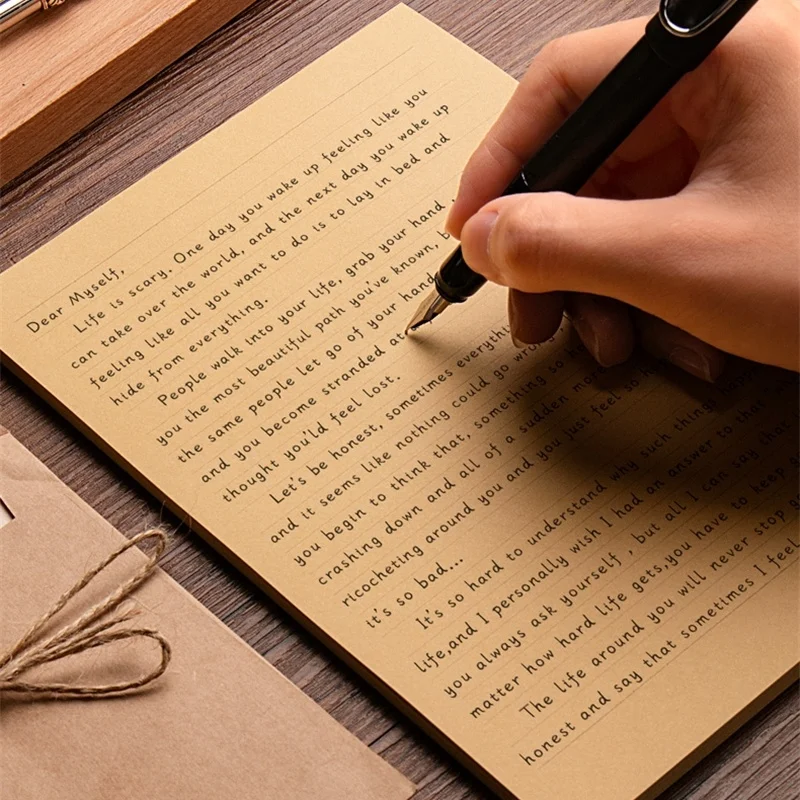 Dear Myself,
Life is scary. One day you wake up feeling like you
can take over the world, and the next day you wake up
feeling like all you want to do is to lay in bed and
hide from everything.
People walk into your life, grab your hand,
you the most beautiful path you've known, b
the same people let go of your hand
and you become stranded at
thought you'ld feel lost.
Let's be honest, sometimes everythi
and it seems like nothing could go wrong
you begin to think that, something so
crashing down and all of a sudden mo
ricocheting around you and you just feel so
it's so bad...
It's so hard to understand why such things
life,and I personally wish I had an answer to that
you always ask yourself , but all I can say that
matter how hard life gets,you have to keep
The life around you will never stop
honest and say that sometimes I feel